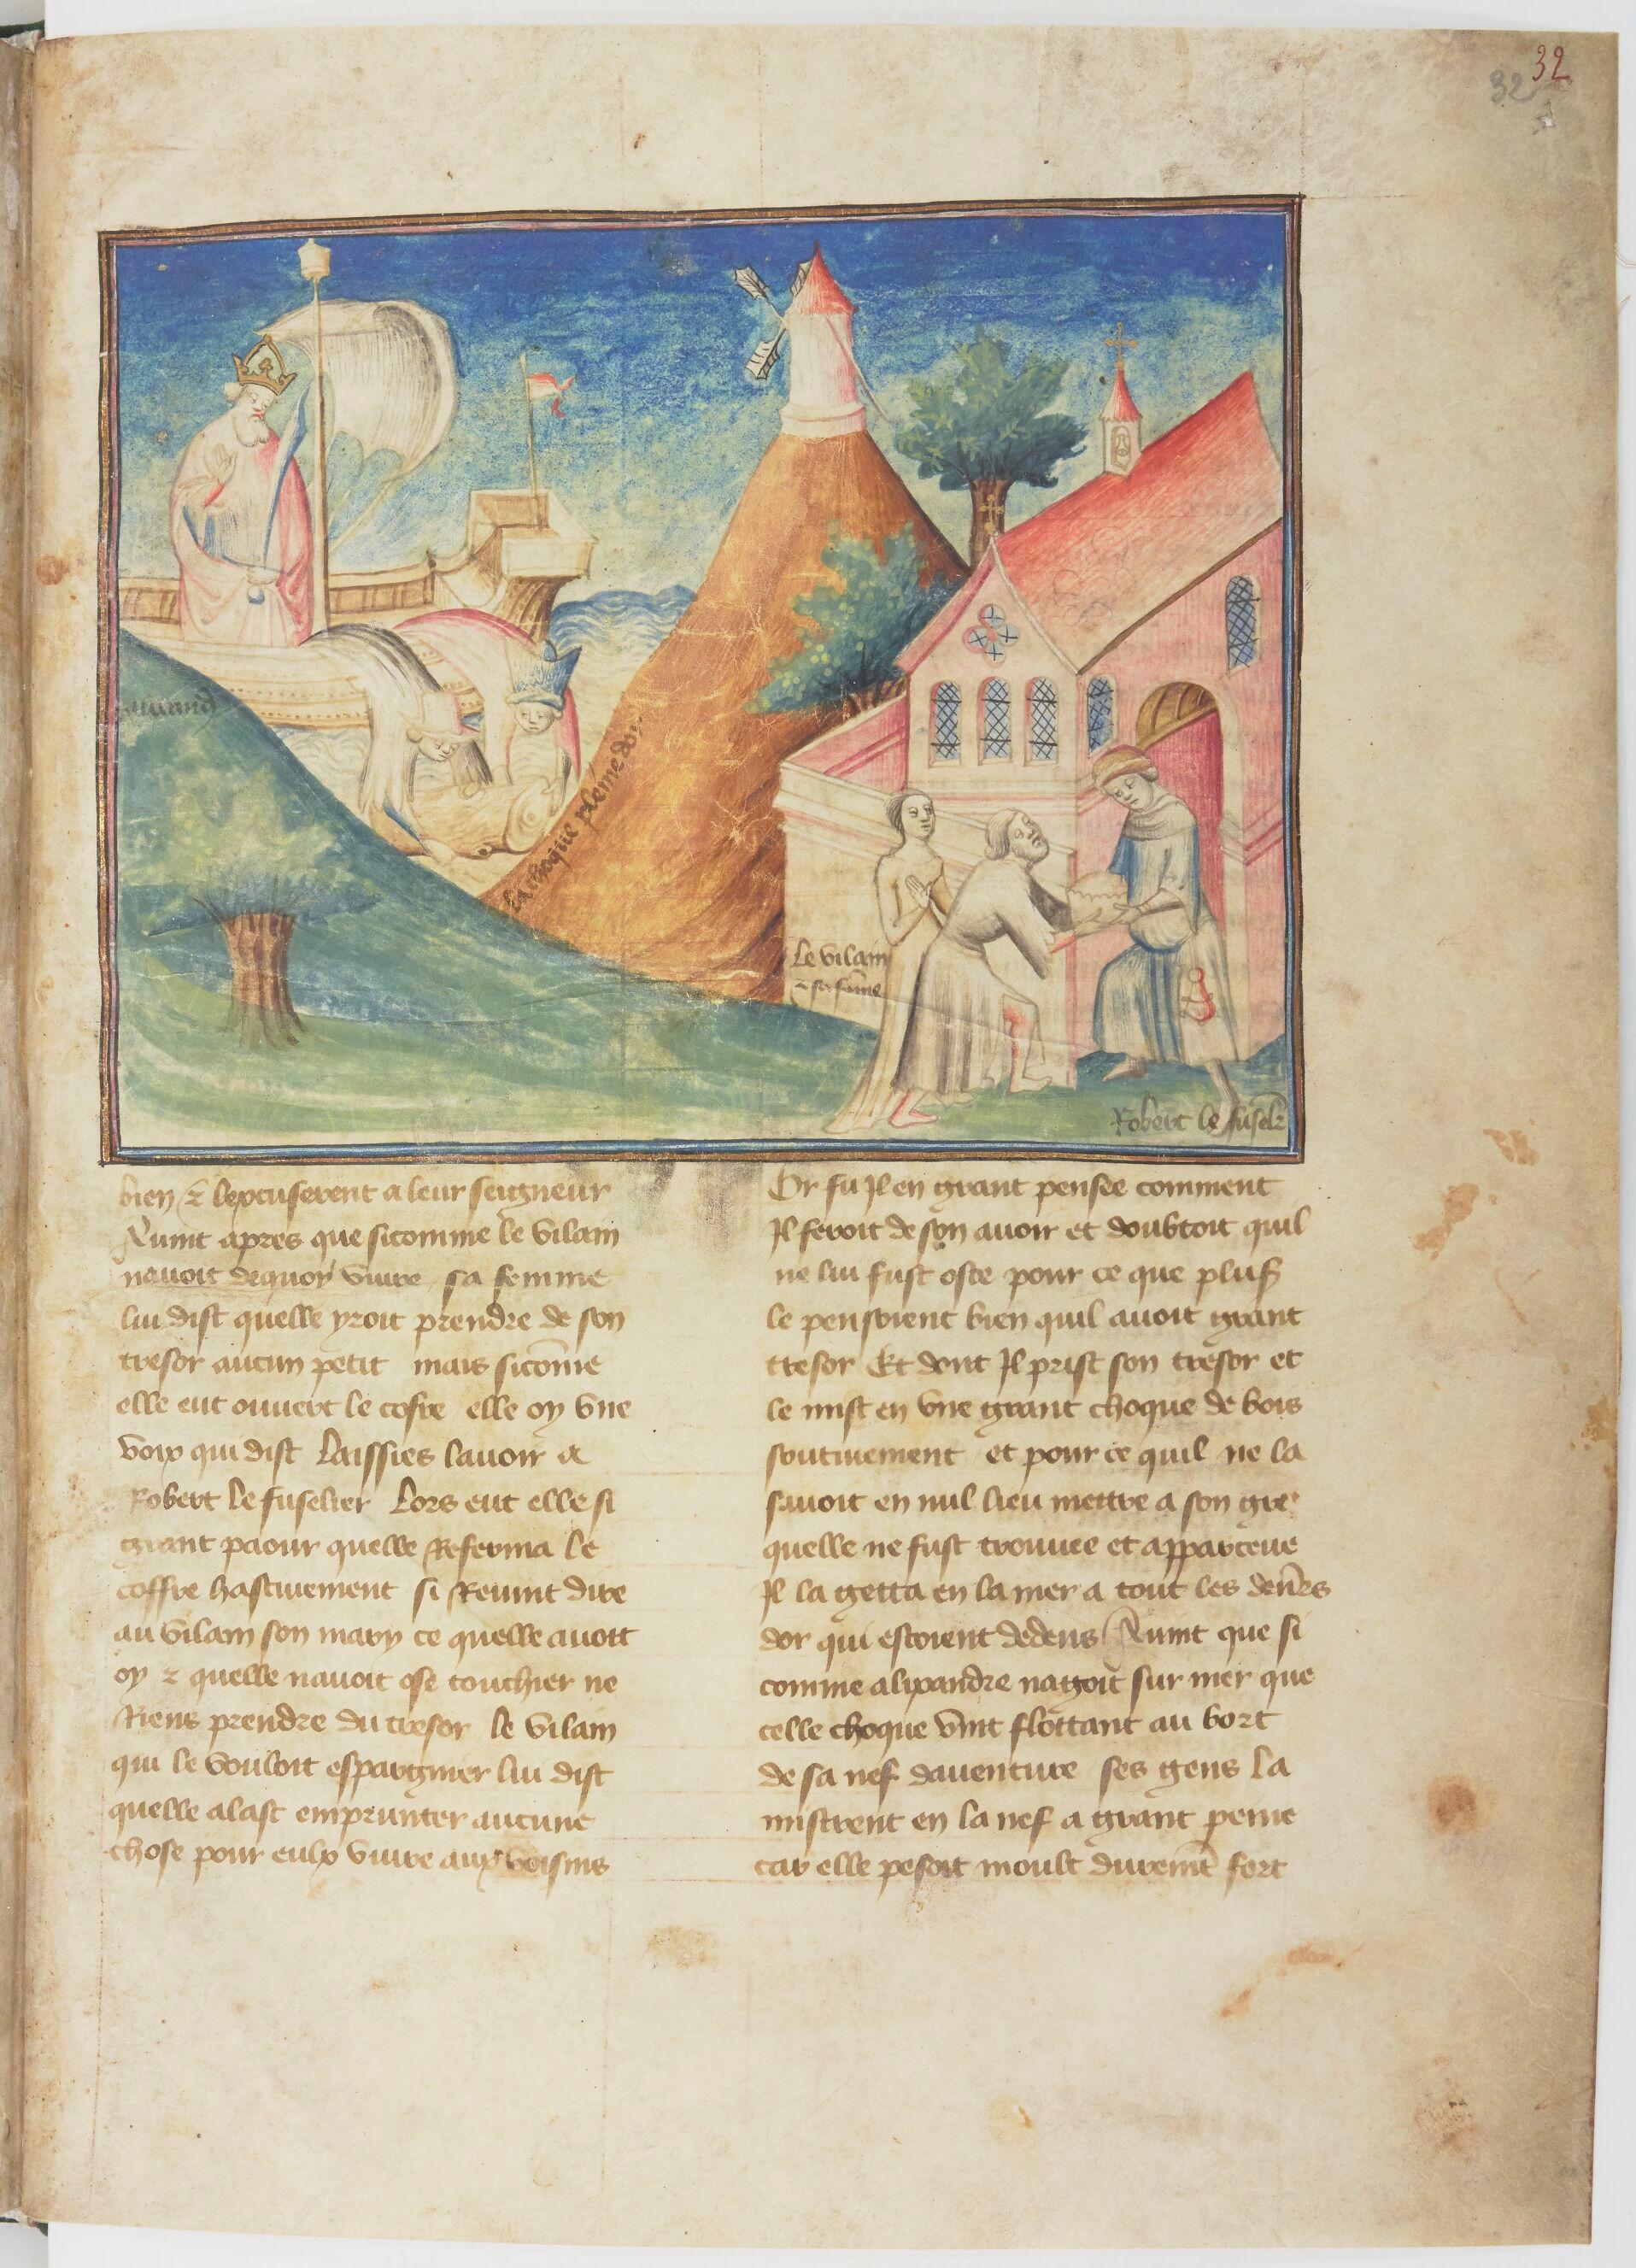 32
32
la choque pleine dor
Le vilain
et sa fame
Robert le fuselr
bien / et lexcuserent a leur seigneur
Auint apres que sicomme le vilain
nauoit dequoy viure sa femme
lui dist quelle yroit prendre de son
tresor aucun petit mais sicome
elle eut ouuert le cofre elle oy vne
voix qui dist Laissies lauoir a
Robert le fuselier Lors eut elle si
grant paour quelle Referma le
coffre hastiuement si Reuint dire
au vilain son mary ce quelle auoit
oy et quelle nauoit ose touchier ne
Riens prendre du tresor le vilain
qui le vouloit espargnier lui dist
quelle alast emprunter aucune
chose pour eulx viure aux voisins
Or fu Il en grant pensee comment
Il feroit de son auoir et doubtoit quil
ne lui fust oste pour ce que plus
le pensoient bien quil auoit grant
tresor Et dont Il prist son tresor et
le mist en vne grant choque de bois
soutiuement et pour ce quil ne la
sauoit en nul lieu mettre a son gre
quelle ne fust trouuee et apparceue
Il la getta en la mer a tout les deniers
dor qui estoient dedens Auint que si
comme alixandre nagoit sur mer que
celle choque vint flottant au bort
de sa nef dauenture ses gens la
mistrent en la nef a grant peine
car elle pesoit moult durement fort